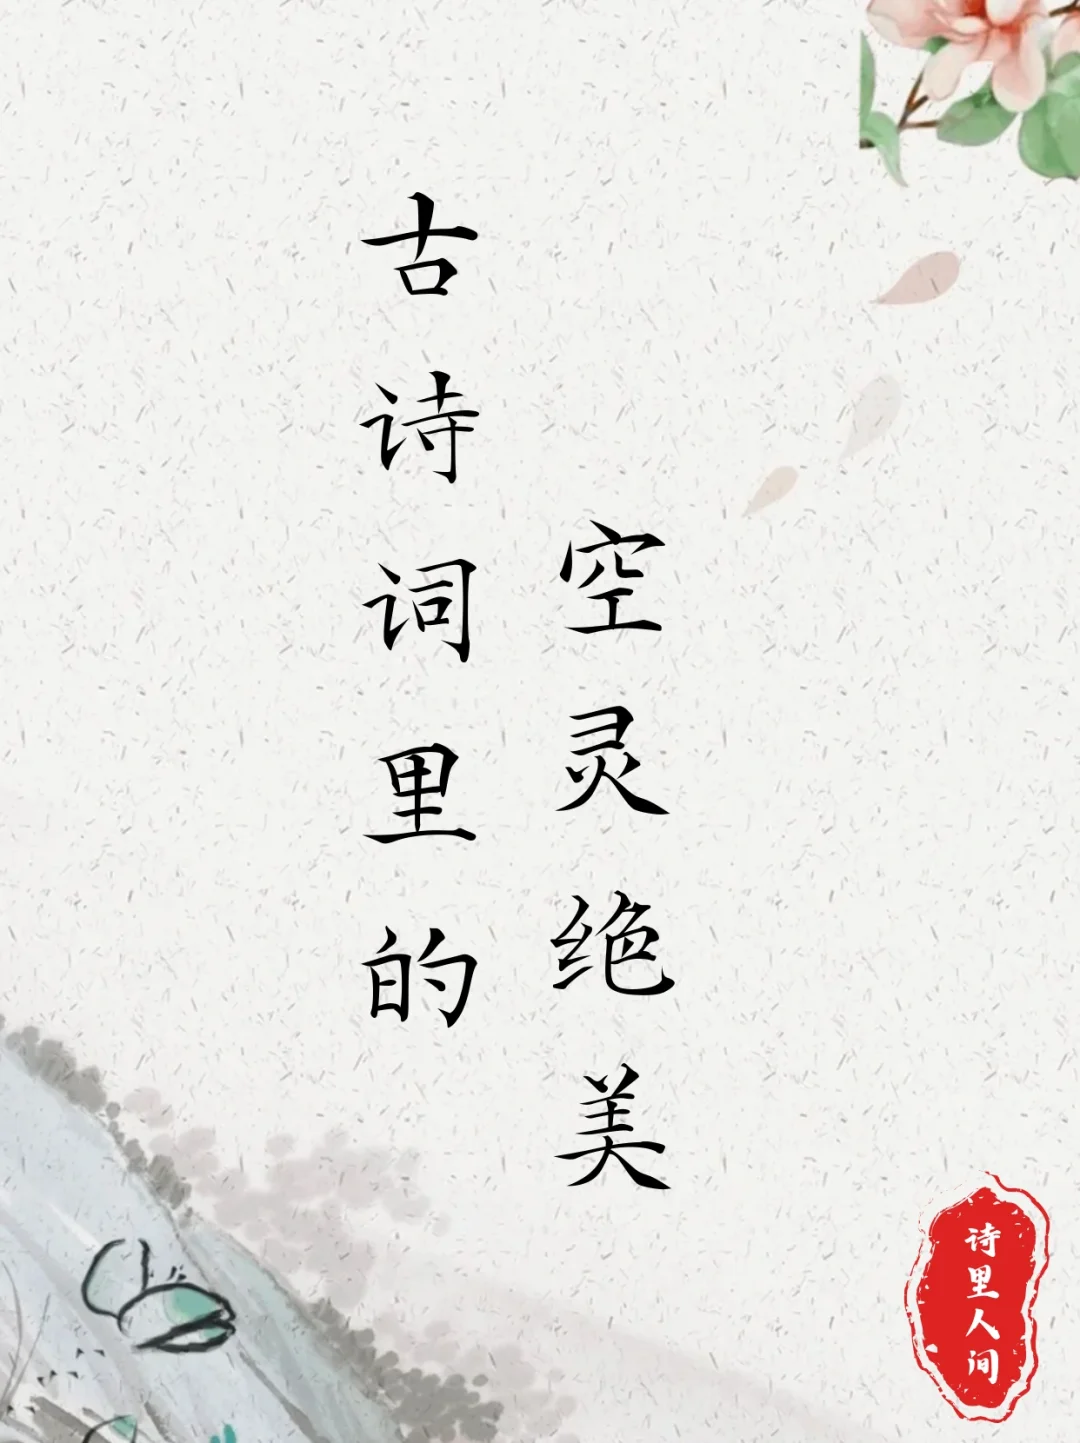 古诗词里的
空灵绝美
诗里人间